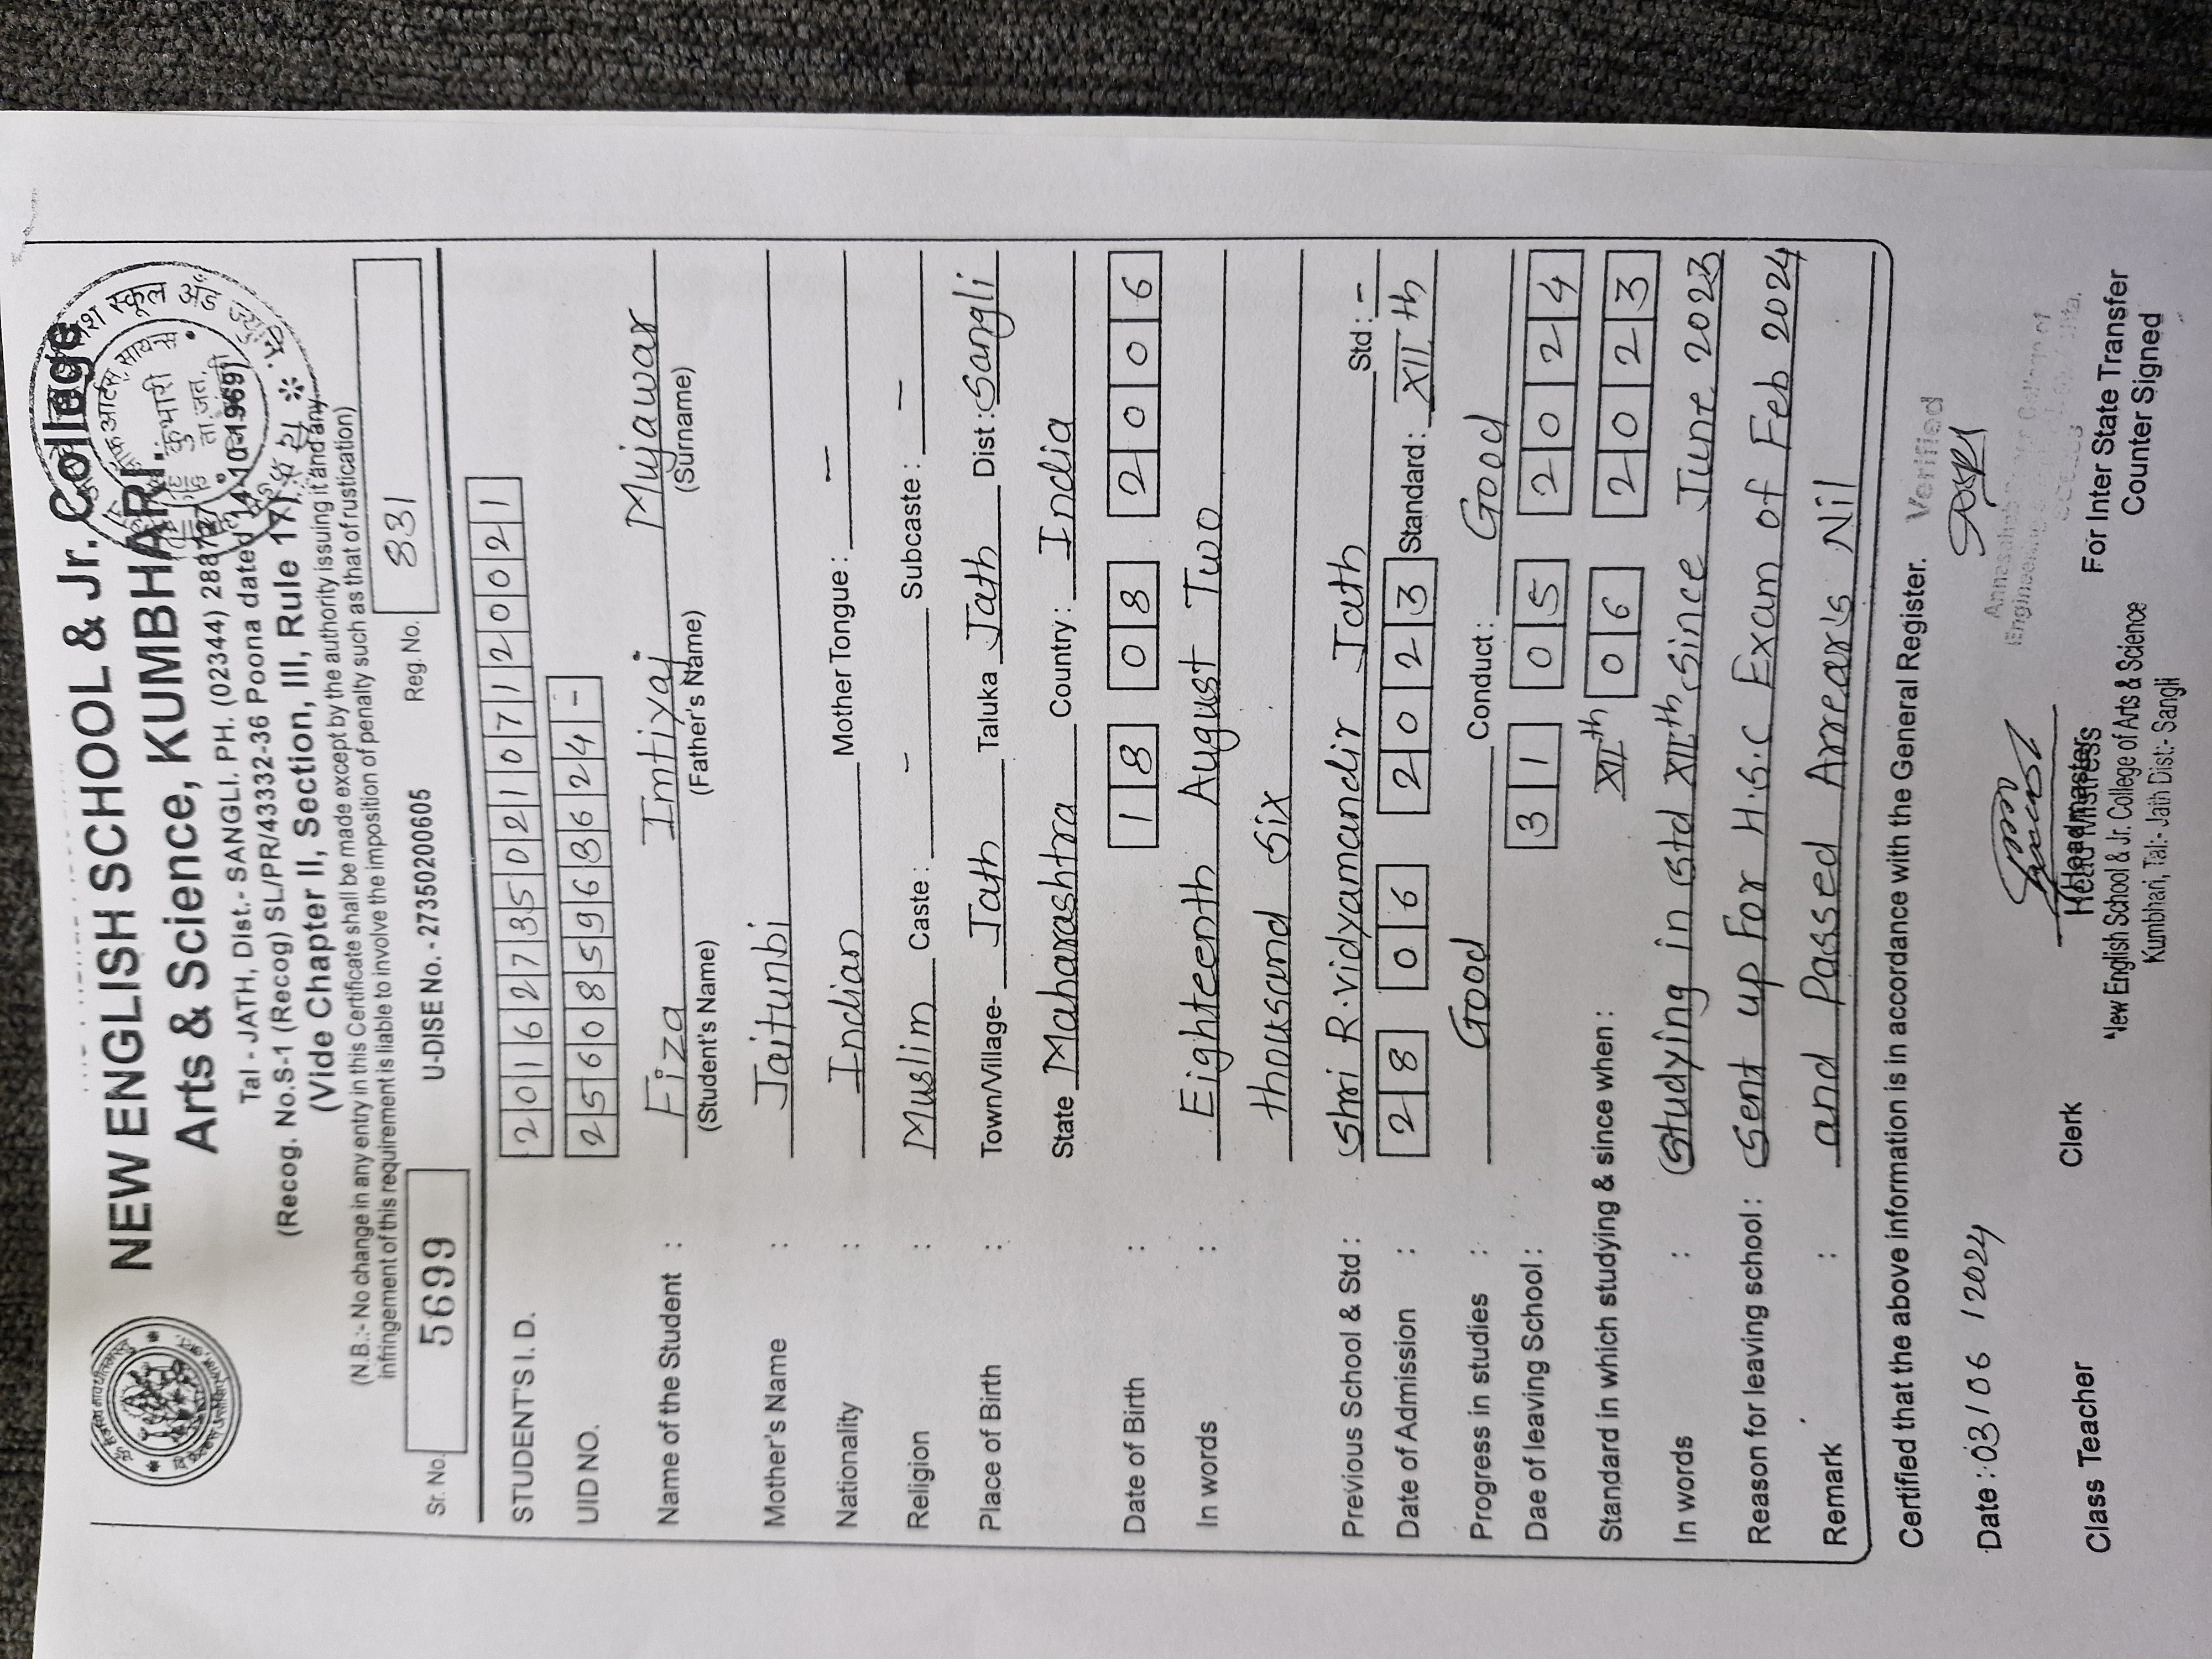 NEW ENGLISH SCHOOL & Jr. College
Arts & Science, KUMBHARI.
Tal - JATH, Dist.- SANGLI. PH. (02344)
(Recog. No.S-1 (Recog) SL/PR/43332-36 Poona dated 14-10-1969)
(Vide Chapter II, Section, III, Rule 17)
(N.B.:- No change in any entry in this Certificate shall be made except by the authority issuing it and any
infringement of this requirement is liable to involve the imposition of penalty such as that of rustication)
Sr. No. 5699 U-DISE No. - 27350200605 Reg. No. 831
STUDENT'S I. D. 2016273502107120021
UID NO. 256085963624-
Name of the Student : Fiza Imtiyaj Mujawar
(Student's Name) (Father's Name) (Surname)
Mother's Name : Jaitunbi
Nationality : Indian Mother Tongue : -
Religion : Muslim Caste : - Subcaste : -
Place of Birth : Town/Village- Jath Taluka Jath Dist : Sangli
State Maharashtra Country : India
Date of Birth : 18 08 2006
In words : Eighteenth August Two
thousand Six
Previous School & Std : Shri R.vidyamandir Jath Std : -
Date of Admission : 28 06 2023 Standard : XIIth
Progress in studies : Good Conduct : Good
Dae of leaving School : 31 05 2024
Standard in which studying & since when : XIIth 06 2023
In words : Studying in Std XIIth Since June 2023
Reason for leaving school : Sent up For H.S.C Exam of Feb 2024
Remark : and Passed Arrear's Nil
Certified that the above information is in accordance with the General Register.
Verified
Date : 03/06/2024
Class Teacher Clerk Headmaster For Inter State Transfer
New English School & Jr. College of Arts & Science Counter Signed
Kumbhari, Tal:- Jath Dist:- Sangli